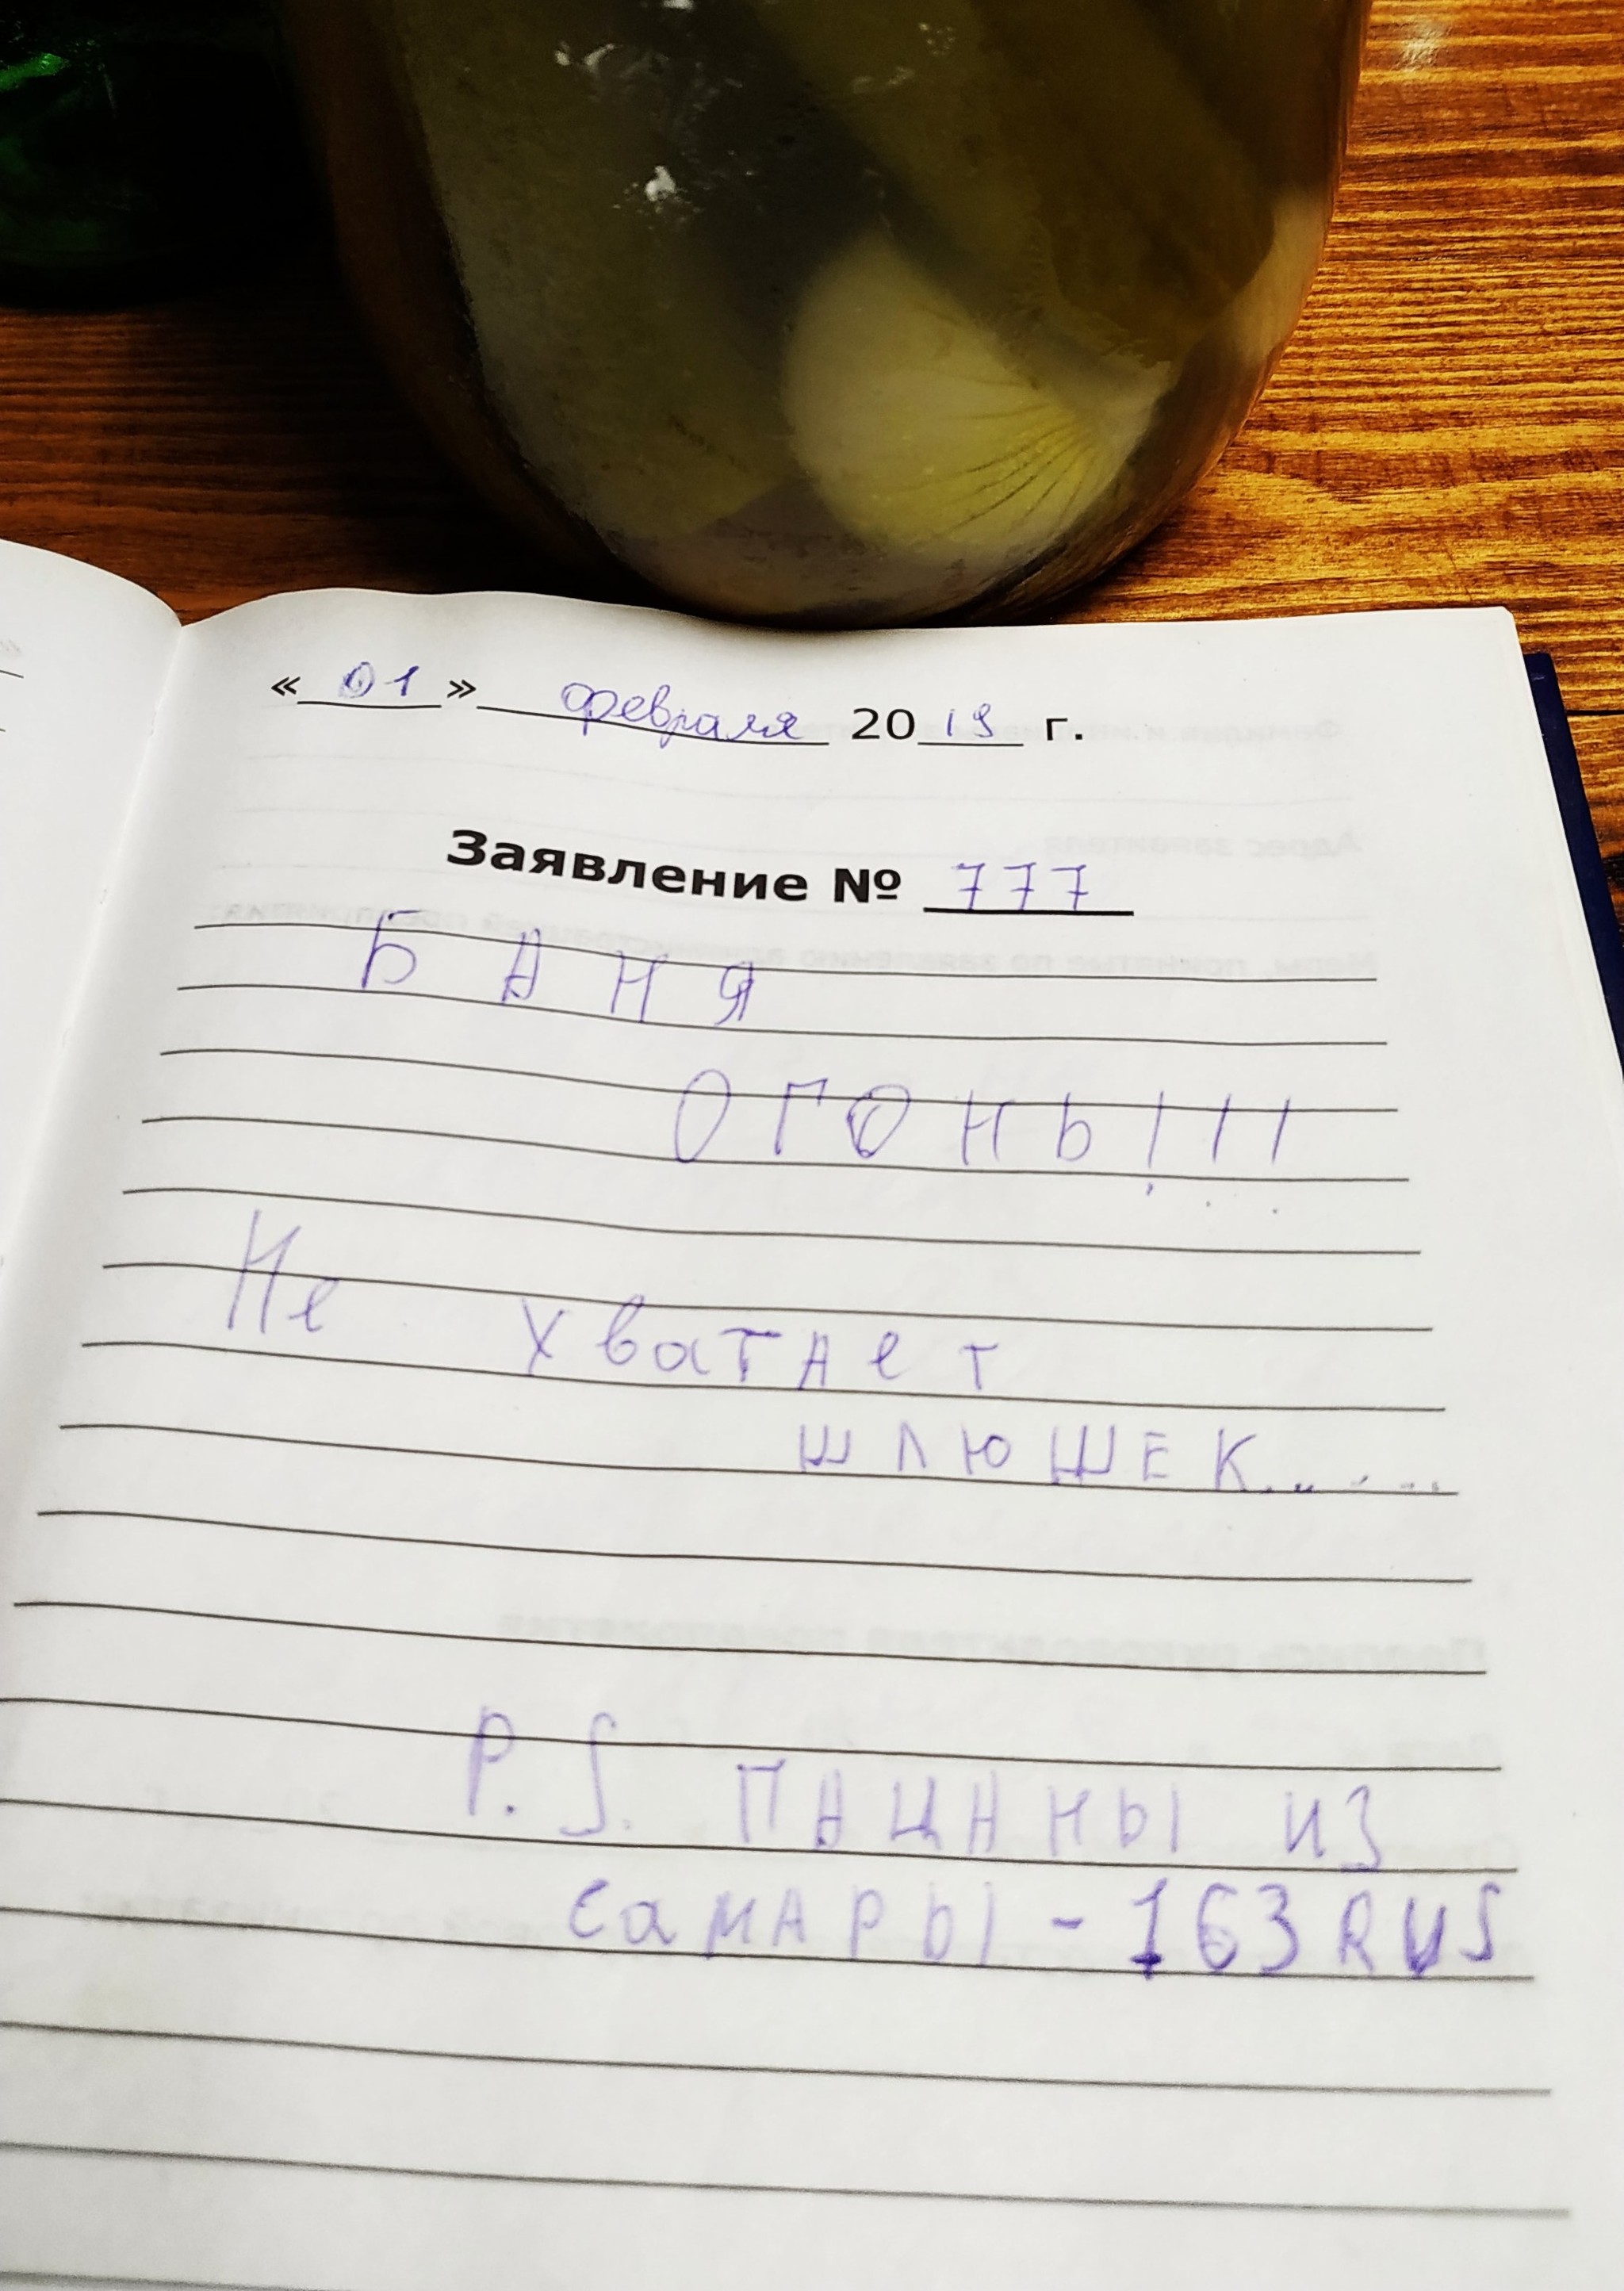 «01» февраля 2019 г.
Заявление № 777
БАНЯ
ОГОНЬ!!!
Не хватает
шлюшек......
P.S. ПАЦАНЫ из
самары - 163RUS